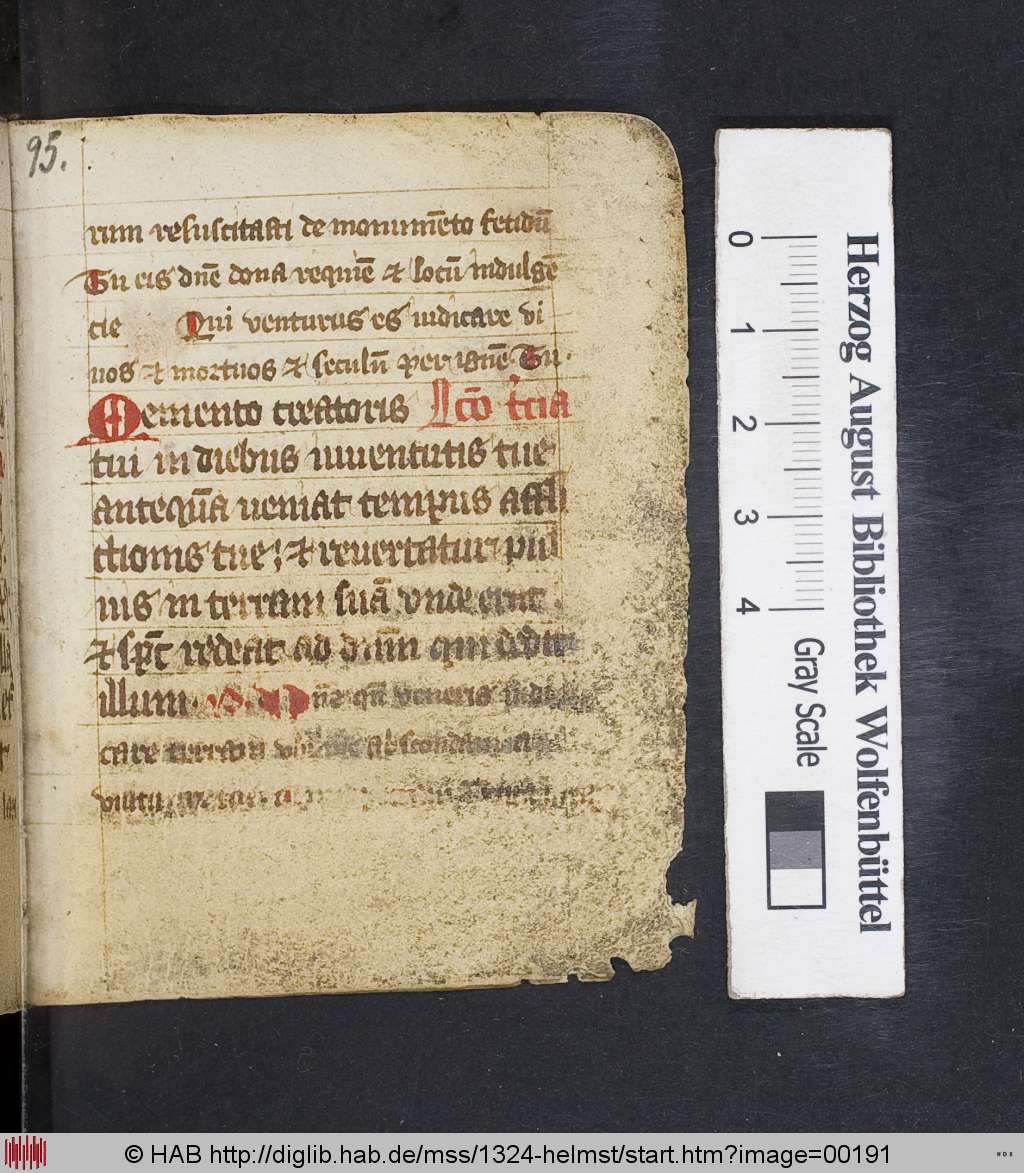 95.
rum resuscitasti de monumēto fetidū
Tu eis dn̄e dona requiē et locū indulgē
cie Qui venturus es iudicare vi
uos et mortuos et seculū per ignē Tu.
Memento creatoris Lc̄o t̄cia
tui in diebus iuuentutis tue
antequā ueniat tempus affli
ctionis tue; et reuertatur pul
uis in terram suā vnde erat.
et sp̄c redeat ad dn̄m qui dedit
illum. n̄e qn̄ veneris iudi
care terram
Herzog August Bibliothek Wolfenbüttel
0 1 2 3 4
Gray Scale
© HAB http://diglib.hab.de/mss/1324-helmst/start.htm?image=00191